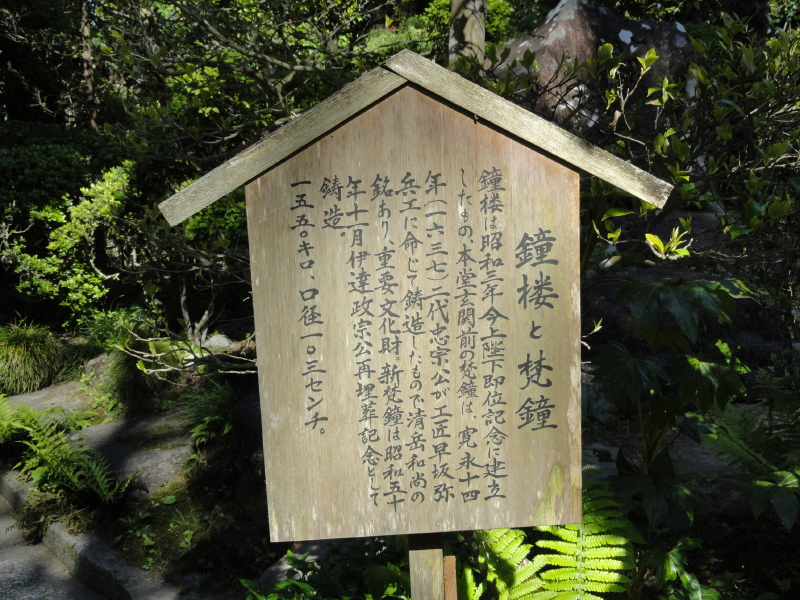 鐘楼と梵鐘
鐘楼は昭和三年今上陛下即位記念に建立
したもの。本堂玄関前の梵鐘は、寛永十四
年（一六三七）二代忠宗公が工匠早坂弥
兵工に命じて鋳造したもので清岳和尚の
銘あり、重要文化財。新梵鐘は昭和五十
年十一月伊達政宗公再埋葬記念として
鋳造。
一五五〇キロ、口径一〇三センチ。